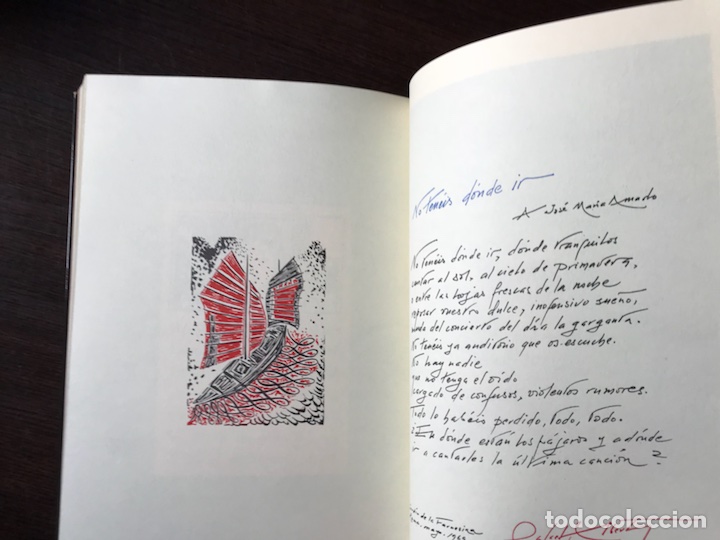 No tenéis dónde ir
A José María Amado
No tenéis dónde ir, dónde tranquilos
cantar al sol, al cielo de primavera,
entre las hojas frescas de la noche
reposar vuestro dulce, inofensivo sueño,
del concierto del día la garganta.
No tenéis ya auditorio que os escuche.
No hay nadie
que no tenga el oído
cargado de confusos, violentos rumores.
Todo lo habéis perdido, todo, todo.
¿En dónde están los pájaros y adónde
ir a cantarles la última canción?
de la Farnesina
todocoleccion
todocoleccion.net